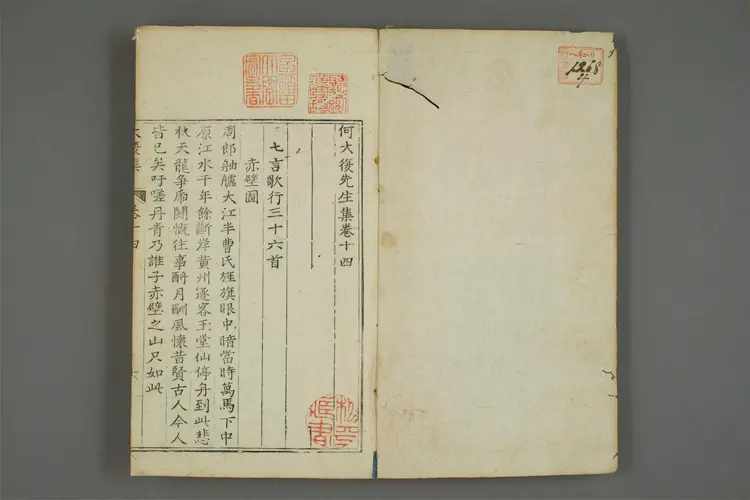 何大復先生集卷十四
七言歌行三十六首
赤壁圖
周郎舳艫大江半曹氏旌旗眼中暗當時萬馬下中
原江水千年餘斷岸黃州逐客玉堂仙停舟到此悲
秋天龍爭虎鬪慨往事酹月酬風懷昔賢古人今人
皆已矣吁嗟丹青乃誰子赤壁之山只如此
1268